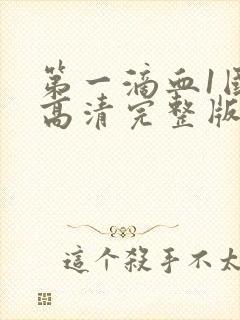 第一滴血1国
高清完整版
這个殺手不太